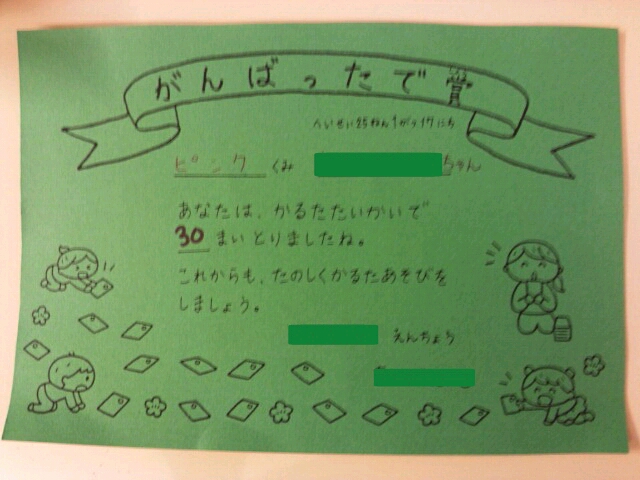 がんばったで賞
へいせい25ねん1がつ17にち
ピンク くみ ちゃん
あなたは、かるたたいかいで
30 まいとりましたね。
これからも、たのしくかるたあそびを
しましょう。
えんちょう